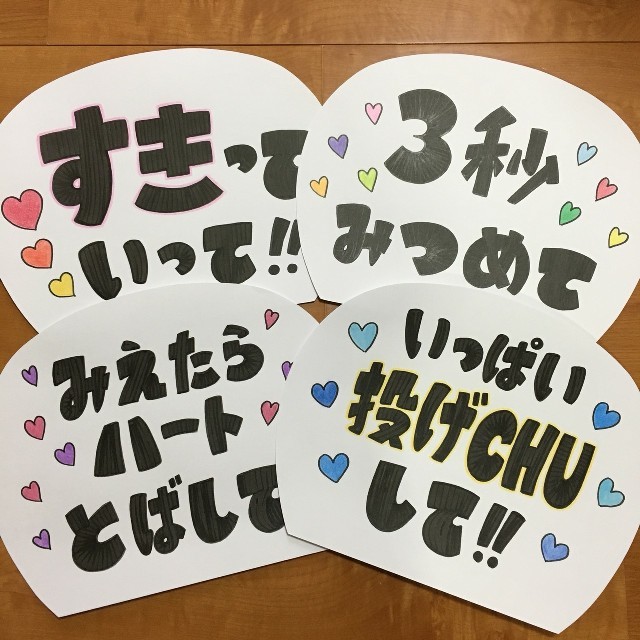 すきって
いって!!
3秒
みつめて
みえたら
ハート
とばして
いっぱい
投げCHU
して!!